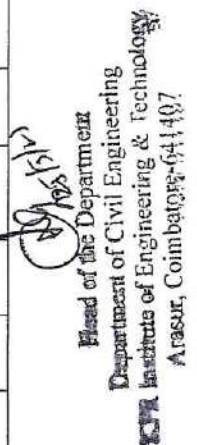 Head of the Department
Department of Civil Engineering
Institute of Engineering & Technology,
Arasur, Coimbatore-641407